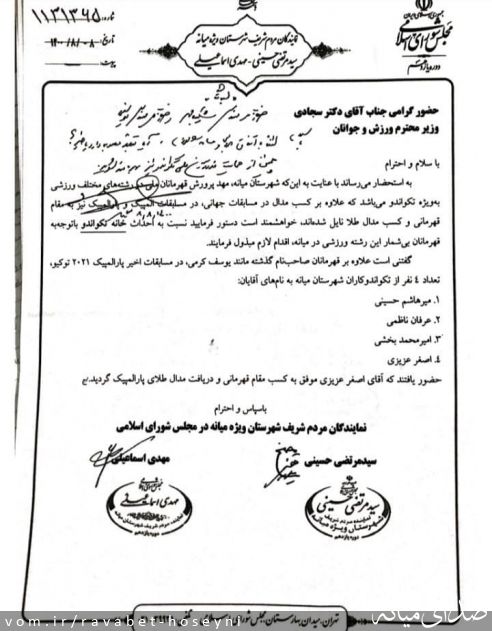 شماره: ۱۱۳۱۳۶۵
تاریخ: ۱۴۰۰/۸/۰۸
پیوست:
نمایندگان مردم شریف شهرستان ویژه میانه
سیدمرتضی حسینی - مهدی اسماعیلی
مجلس شورای اسلامی
دوره یازدهم
حضور گرامی جناب آقای دکتر سجادی
وزیر محترم ورزش و جوانان
با سلام و احترام
به استحضار می‌رساند با عنایت به این‌که شهرستان میانه، مهد پرورش قهرمانان ملی در رشته‌های مختلف ورزشی
به‌ویژه تکواندو می‌باشد که علاوه بر کسب مدال در مسابقات جهانی، در مسابقات المپیک و پارالمپیک نیز به مقام
۱۴۰۰/۸/۸
قهرمانی و کسب مدال طلا نایل شده‌اند، خواهشمند است دستور فرمایید نسبت به احداث خانه تکواندو باتوجه‌به
قهرمانان بی‌شمار این رشته ورزشی در میانه، اقدام لازم مبذول فرمایند.
گفتنی است علاوه بر قهرمانان صاحب‌نام گذشته مانند یوسف کرمی، در مسابقات اخیر پارالمپیک ۲۰۲۱ توکیو،
تعداد ۴ نفر از تکواندوکاران شهرستان میانه به نام‌های آقایان:
۱. میرهاشم حسینی
۲. عرفان ناظمی
۳. امیرمحمد بخشی
۴. اصغر عزیزی
حضور یافتند که آقای اصغر عزیزی موفق به کسب مقام قهرمانی و دریافت مدال طلای پارالمپیک گردید.
باسپاس و احترام
نمایندگان مردم شریف شهرستان ویژه میانه در مجلس شورای اسلامی
سیدمرتضی حسینی
مهدی اسماعیلی
سیدمرتضی حسینی
نماینده مردم شریف
شهرستان ویژه میانه
دوره یازدهم
مهدی اسماعیلی
نماینده مردم شریف شهرستان میانه
دوره یازدهم
تهران، میدان بهارستان، مجلس شورای اسلامی
صدای میانه
vom.ir/ravabet-hoseyni